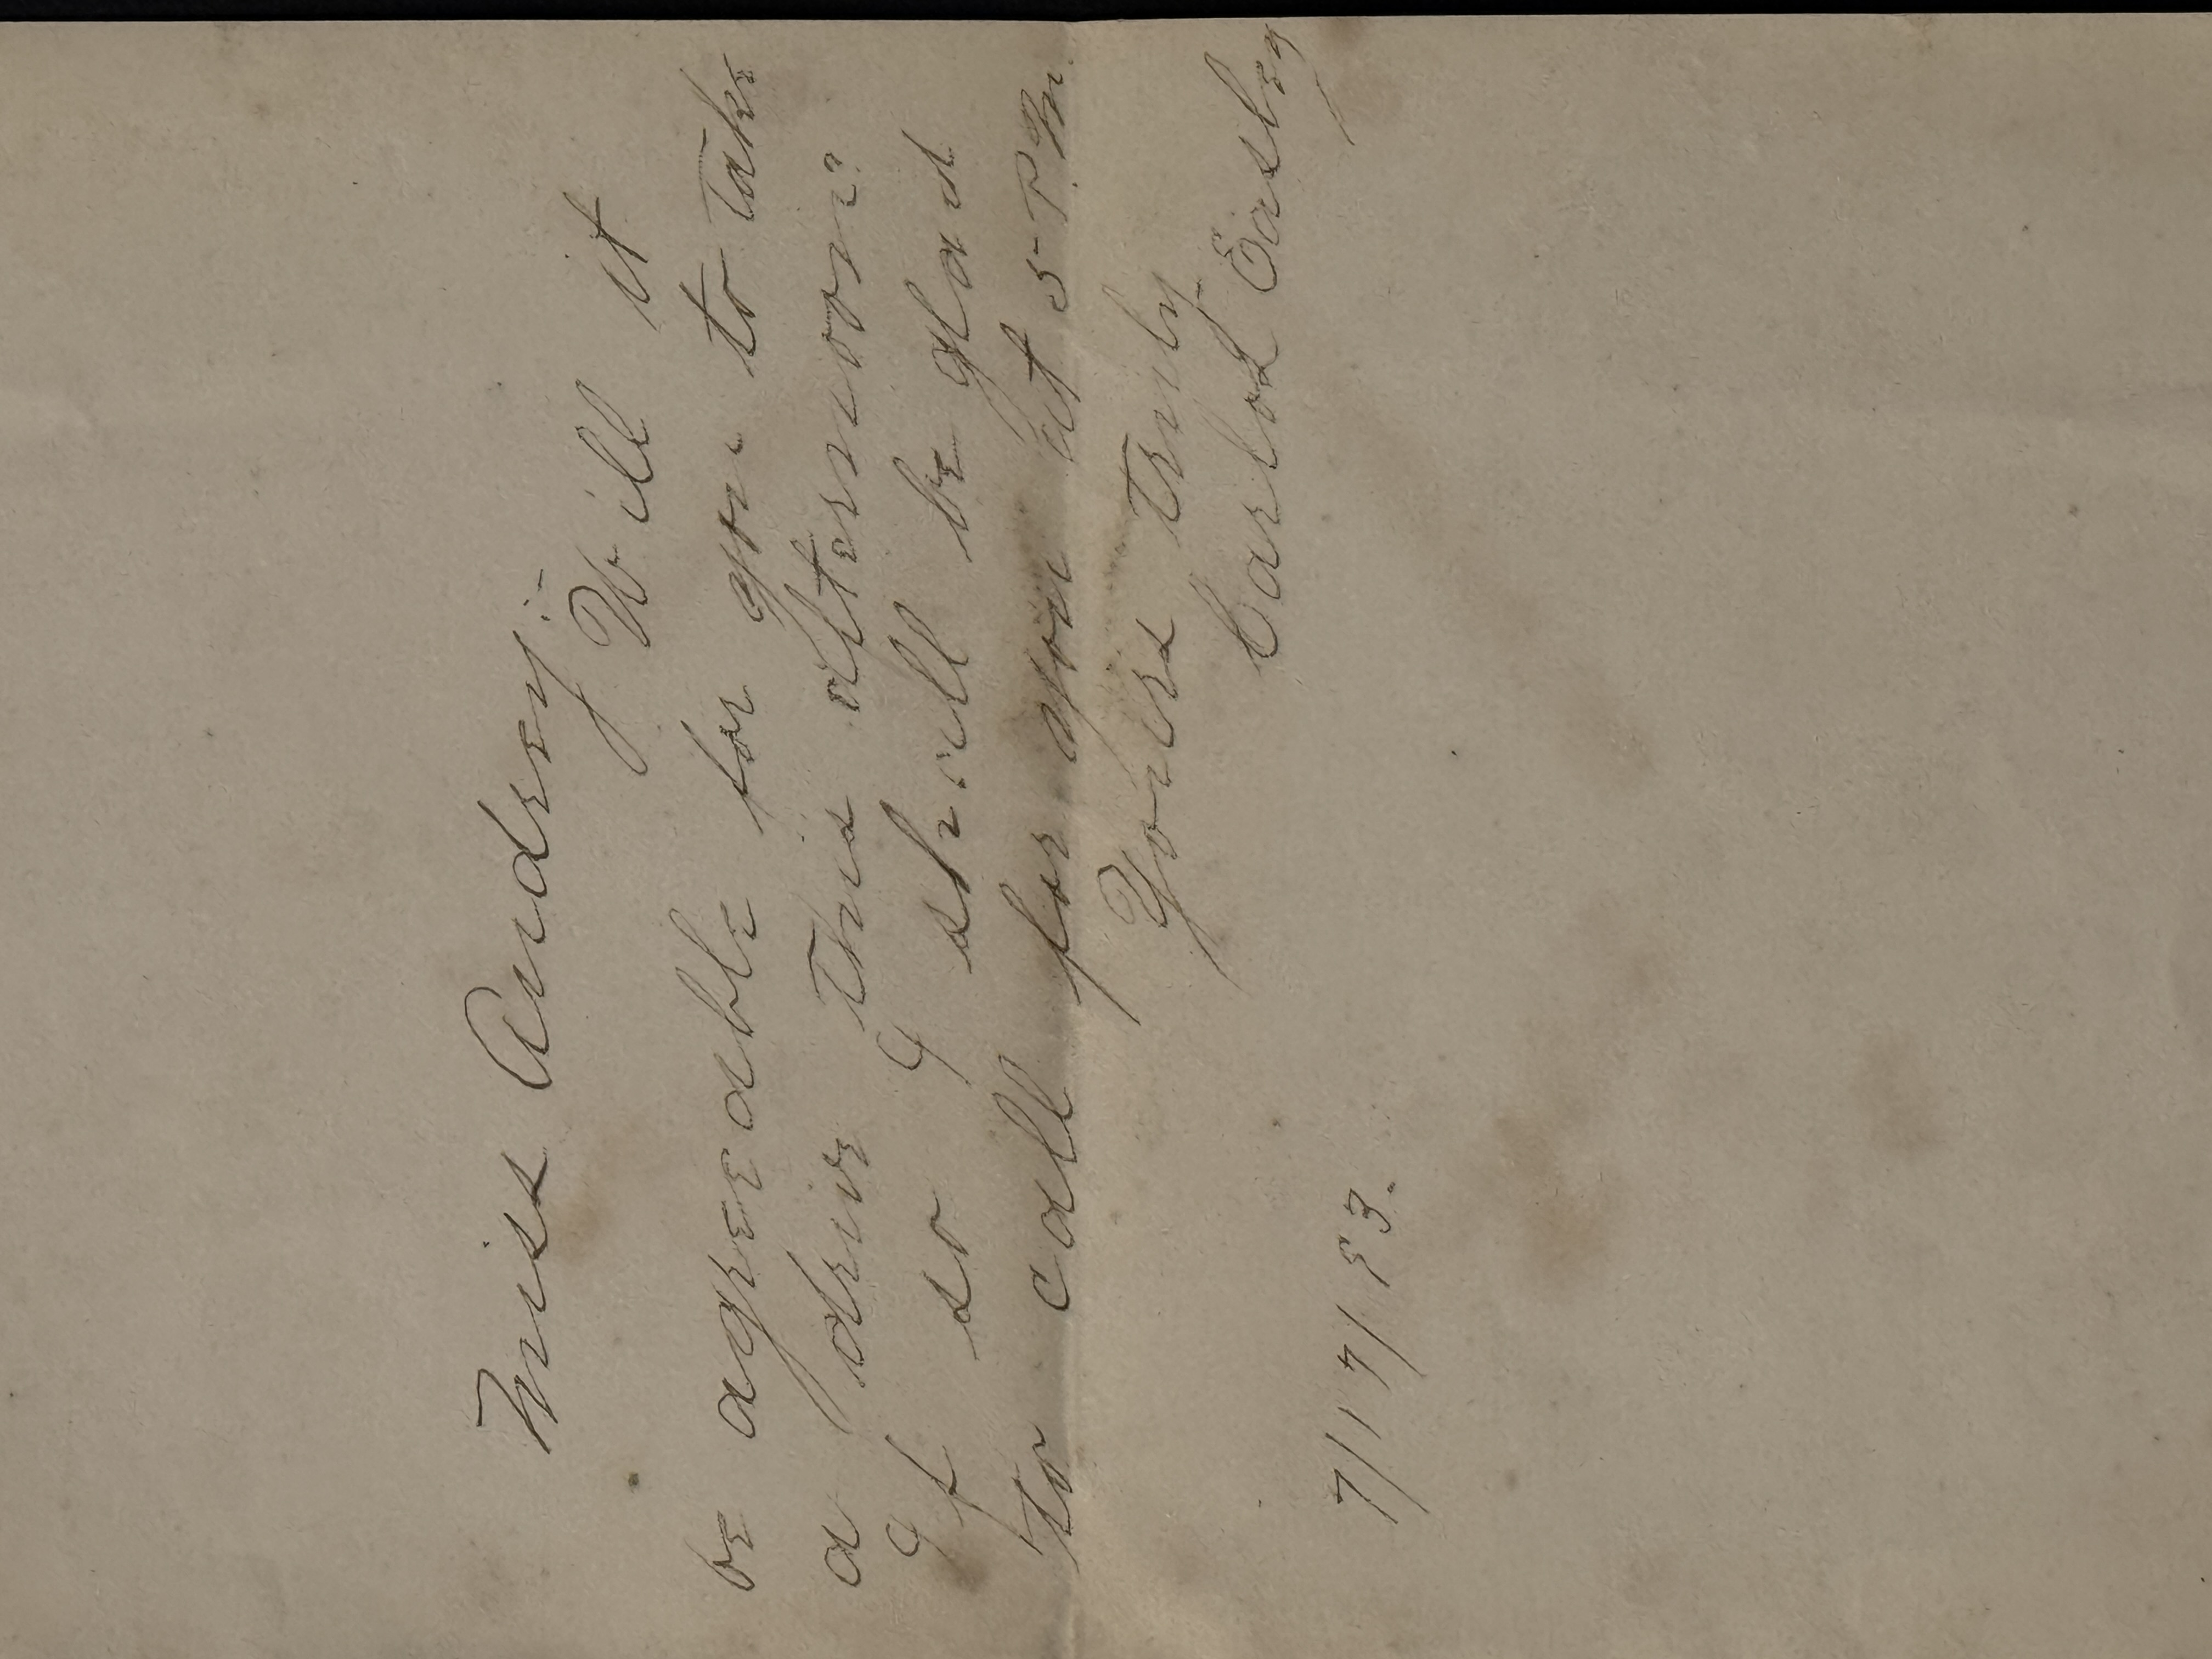 Miss Audrey:-
Will it
be agreeable for you to take
a drive this afternoon?
If so I shall be glad
to call for you at 5 P.M.
Yours Truly
Carlos Easley
7/17/83.